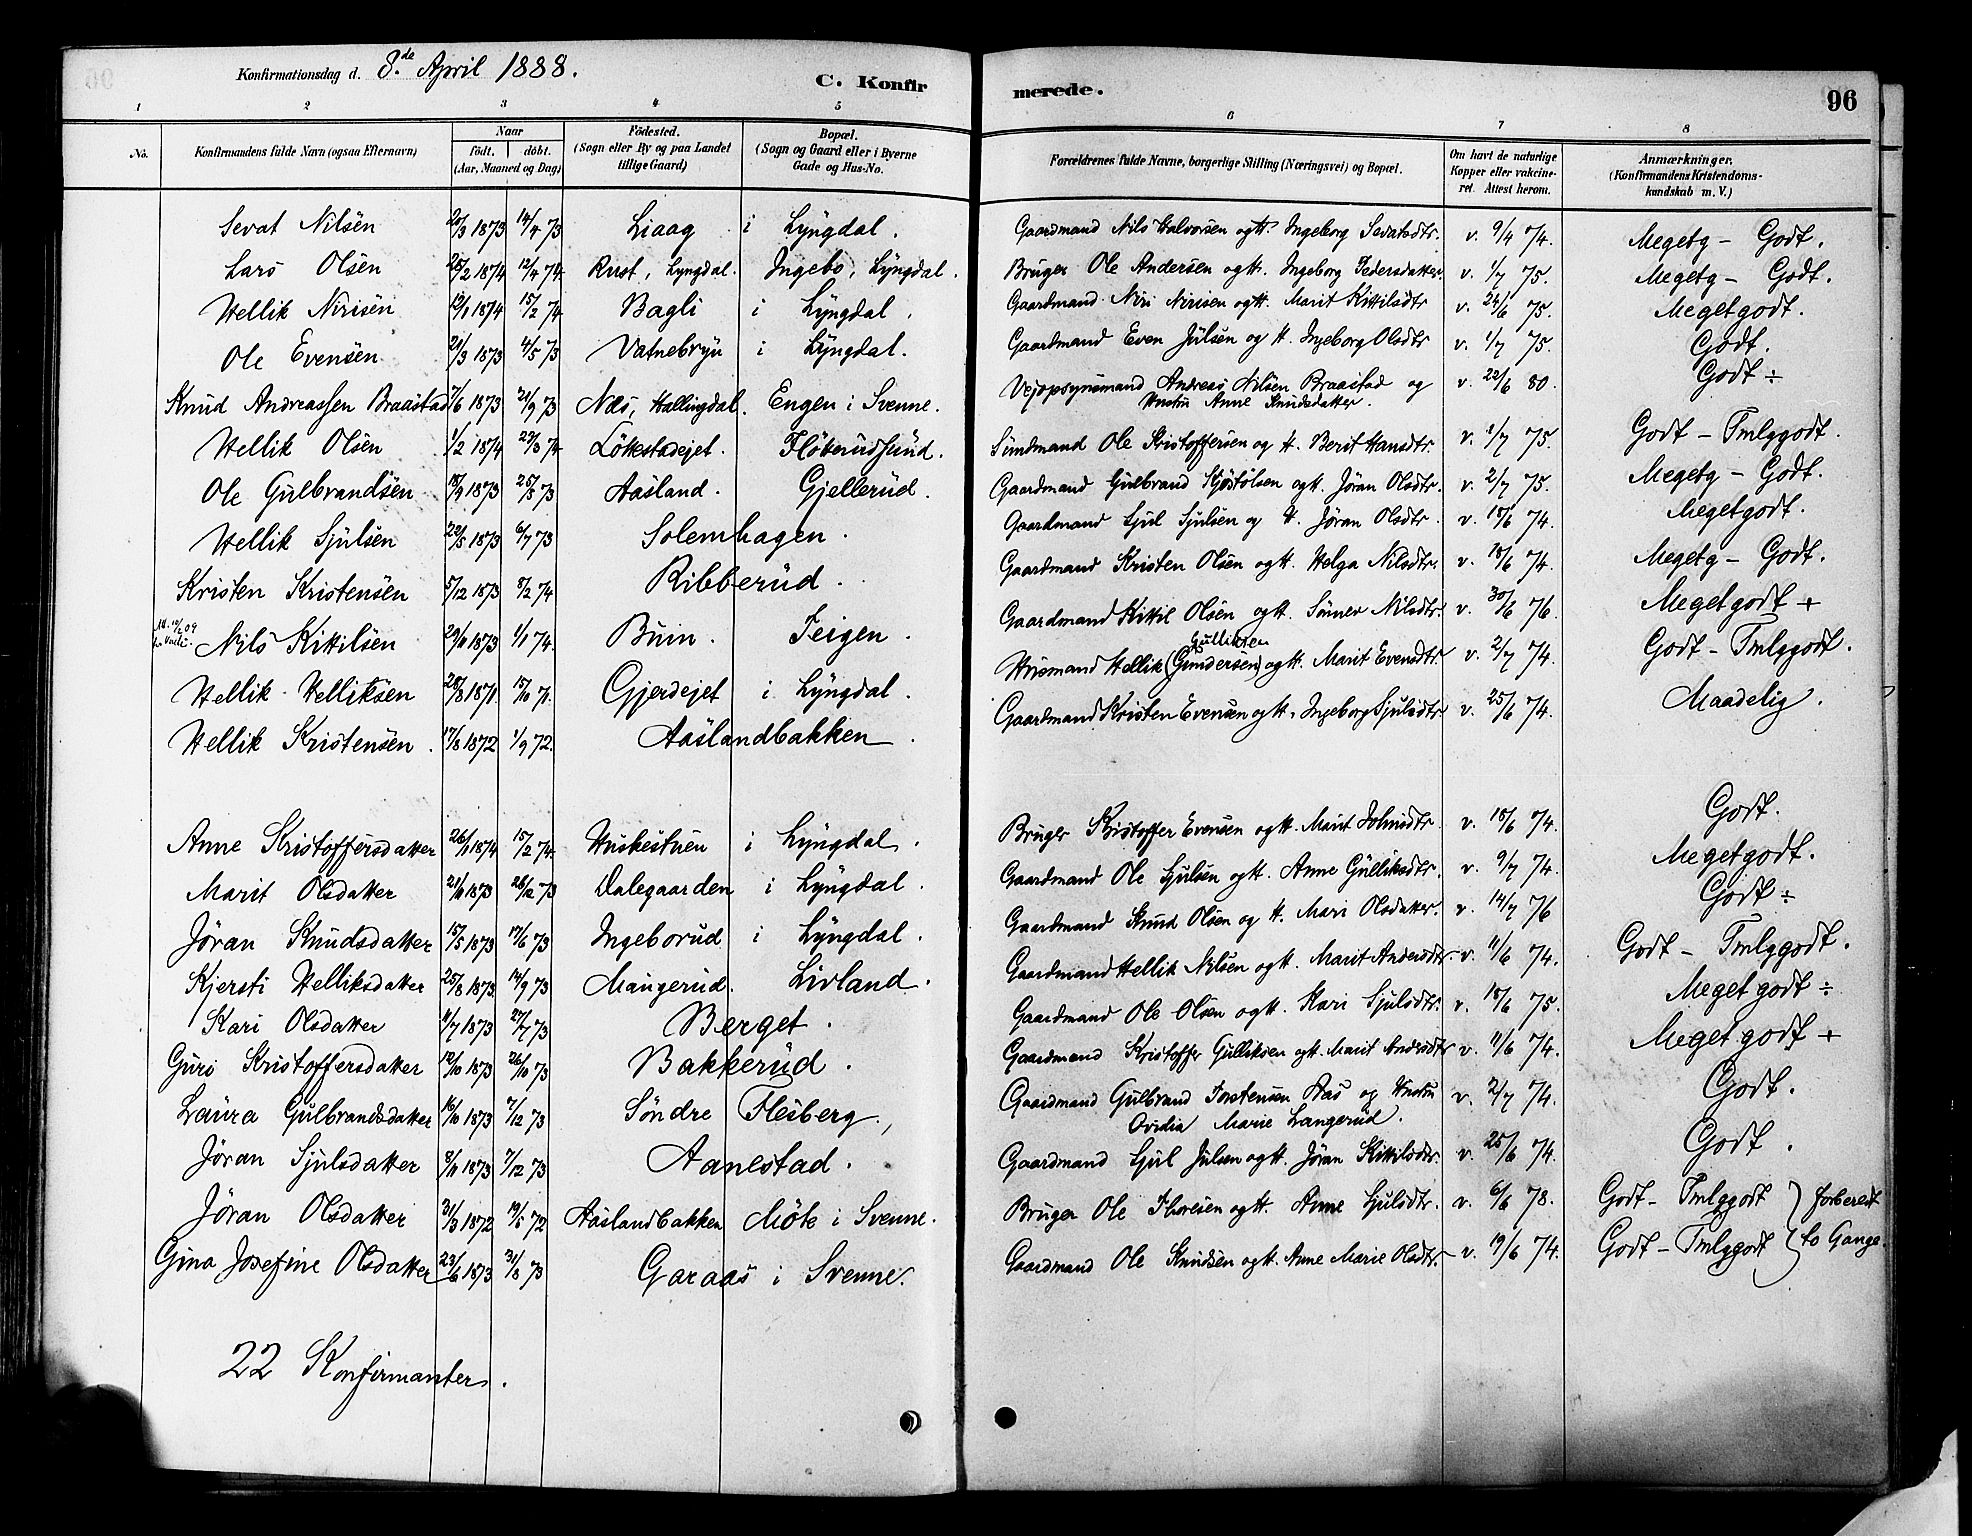 Konfirmationsdag d. 8.de April 1888.
C. Konfirmerede.
96
1 2 3 4 5 6 7 8
No.
Konfirmandens fulde Navn (ogsaa Efternavn)
Naar
födt. döbt.
(Aar, Maaned og Dag)
Födested.
(Sogn eller By og paa Landet
tillige Gaard)
Bopæl.
(Sogn og Gaard eller i Byerne
Gade og Hus-No.
Forældrenes fulde Navne, borgerlige Stilling (Næringsvei) og Bopæl.
Om havt de naturlige
Kopper eller vakcine-
ret. Attest herom.
Anmærkninger.
(Konfirmandens Kristendoms-
kundskab m. V.)
Sevat Nilsen 20/3 1873 14/4 73 Liaag i Lyngdal. Gaardmand Nils Halvorsen og H. Ingeborg Sevatsdtr. v. 9/4 74. Megetg - Godt.
Lars Olsen 25/2 1874 12/4 74 Rust, Lyngdal. Ingebo, Lyngdal. Bruger Ole Andersen og H. Ingeborg Pedersdatter v. 1/7 75. Megetg - Godt.
Hellik Nirisen 19/1 1874 15/2 74 Bagli i Lyngdal. Gaardmand Niri Nirisen og H. Marit Kittilsdtr v. 24/6 75. Megetgodt.
Ole Evensen 21/3 1873 4/5 73 Vatnebryn i Lyngdal. Gaardmand Even Julsen og H. Ingeborg Olsdtr v. 1/7 75. Godt.
Knud Andreassen Braastad 7/6 1873 21/9 73 Næs, Hallingdal. Engen i Svenne. Vejopsynsmand Andreas Nilsen Braastad og v. 22/6 80. Godt ÷
Hustru Anne Knudsdatter.
Hellik Olsen 1/2 1874 29/3 74 Lökestadejet. Flöterudsund. Sundmand Ole Kristoffersen og H. Berit Hansdtr. v. 1/7 75. Godt - Tmlggodt.
Ole Gulbrandsen 18/9 1873 25/5 73 Aasland. Gjellerud. Gaardmand Gulbrand Stöstölsen og H. Jöran Olsdtr. v. 2/7 75. Megetg - Godt.
Hellik Sjulsen 22/5 1873 6/7 73 Solemhagen. Gaardmand Sjul Sjulsen og H. Jöran Olsdtr. v. 18/6 74. Megetgodt.
Kristen Kristensen 5/12 1873 8/2 74 Ribberud. Gaardmand Kristen Olsen og H. Helga Nilsdtr. v. 18/6 74. Megetg - Godt.
Nils Kittilsen 29/11 1873 1/1 74. Buin. Teigen. Gaardmand Kittil Olsen og H. Sönnev Nilsdtr. v. 30/6 76. Megetgodt +
Gulliksen
Hellik Helliksen 28/8 1871. 15/10 71. Gjerdejet i Lyngdal. Husmand Hellik (Gundersen) og H. Marit Evensdtr. v. 2/7 74. Godt - Tmlggodt.
Hellik Kristensen. 17/8 1872 1/9 72. Aaslandbakken. Gaardmand Kristen Evensen og H. Ingeborg Sjulsdtr v. 25/6 74. Maadelig.
Anne Kristoffersdatter 26/1 1874 15/2 74. Huskestuen i Lyngdal. Bruger Kristoffer Evensen og H. Marit Holmsdtr. v. 18/6 74. Godt.
Marit Olsdatter 21/11 1873 26/12 73 Dalegaarden i Lyngdal. Gaardmand Ole Sjulsen og H. Anne Gulliksdtr. v. 9/7 74. Megetgodt.
Jöran Knudsdatter 15/5 1873 17/6 73 Ingeborud i Lyngdal. Gaardmand Knud Olsen og H. Mari Olsdatter. v. 14/7 76 Godt ÷
Kjersti Helliksdatter 25/8 1873. 14/9 73 Mangerud. Livland. Gaardmand Hellik Nilsen og H. Marit Andersdtr. v. 11/6 74. Godt - Tmlggodt.
Kari Olsdatter 11/7 1873 27/7 73 Berget. Gaardmand Ole Olsen og H. Kari Sjulsdtr. v. 18/6 75. Megetgodt ÷
Guri Kristoffersdatter 12/10 1873 26/10 73 Bakkerud. Gaardmand Kristoffer Gulliksen og H. Marit Andersdtr v. 11/6 74. Megetgodt +
Laura Gulbrandsdatter 16/10 1873 7/12 73 Söndre Flesberg. Gaardmand Gulbrand Torstensen Aas og Hustru v. 2/7 74. Godt.
Ovidia Marie Langerud.
Jöran Sjulsdatter 8/11 1873 7/12 73 Aanestad. Gaardmand Sjul Julsen og H. Jöran Kittilsdtr. v. 25/6 74. Godt.
Jöran Olsdatter 31/3 1872 19/5 72 Aaslandbakken Möte i Svenne. Bruger Ole Thoresen og H. Anne Sjulsdtr. v. 6/6 78. Godt - Tmlggodt } forberedt
Gina Josefine Olsdatter 22/6 1873 31/8 73 Garaas i Svenne. Gaardmand Ole Knudsen og H. Anne Marie Olsdtr. v. 19/6 74. Godt - Tmlggodt } to Gange.
22 Konfirmanter.